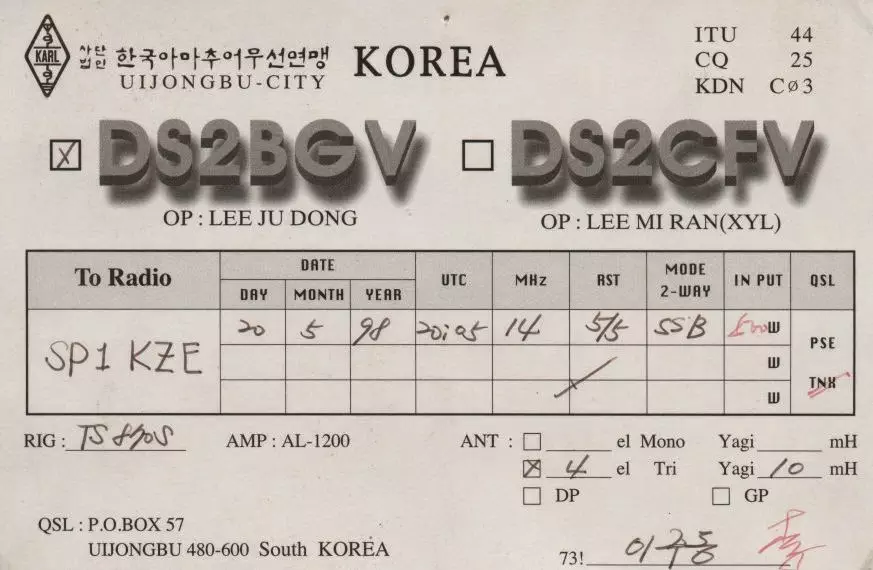 KARL
사단
법인 한국아마추어무선연맹 KOREA
UIJONGBU-CITY
ITU 44
CQ 25
KDN CØ3
DS2BGV DS2CFV
OP : LEE JU DONG OP : LEE MI RAN(XYL)
To Radio DATE UTC MHz RST MODE 2-WAY IN PUT QSL
DAY MONTH YEAR
SP1 KZE 20 5 98 20:05 14 5/5 SSB 500W PSE
W
W TNX
RIG : TS 870S AMP : AL-1200 ANT : el Mono Yagi mH
4 el Tri Yagi 10 mH
DP GP
QSL : P.O.BOX 57
UIJONGBU 480-600 South KOREA
73! 이주동